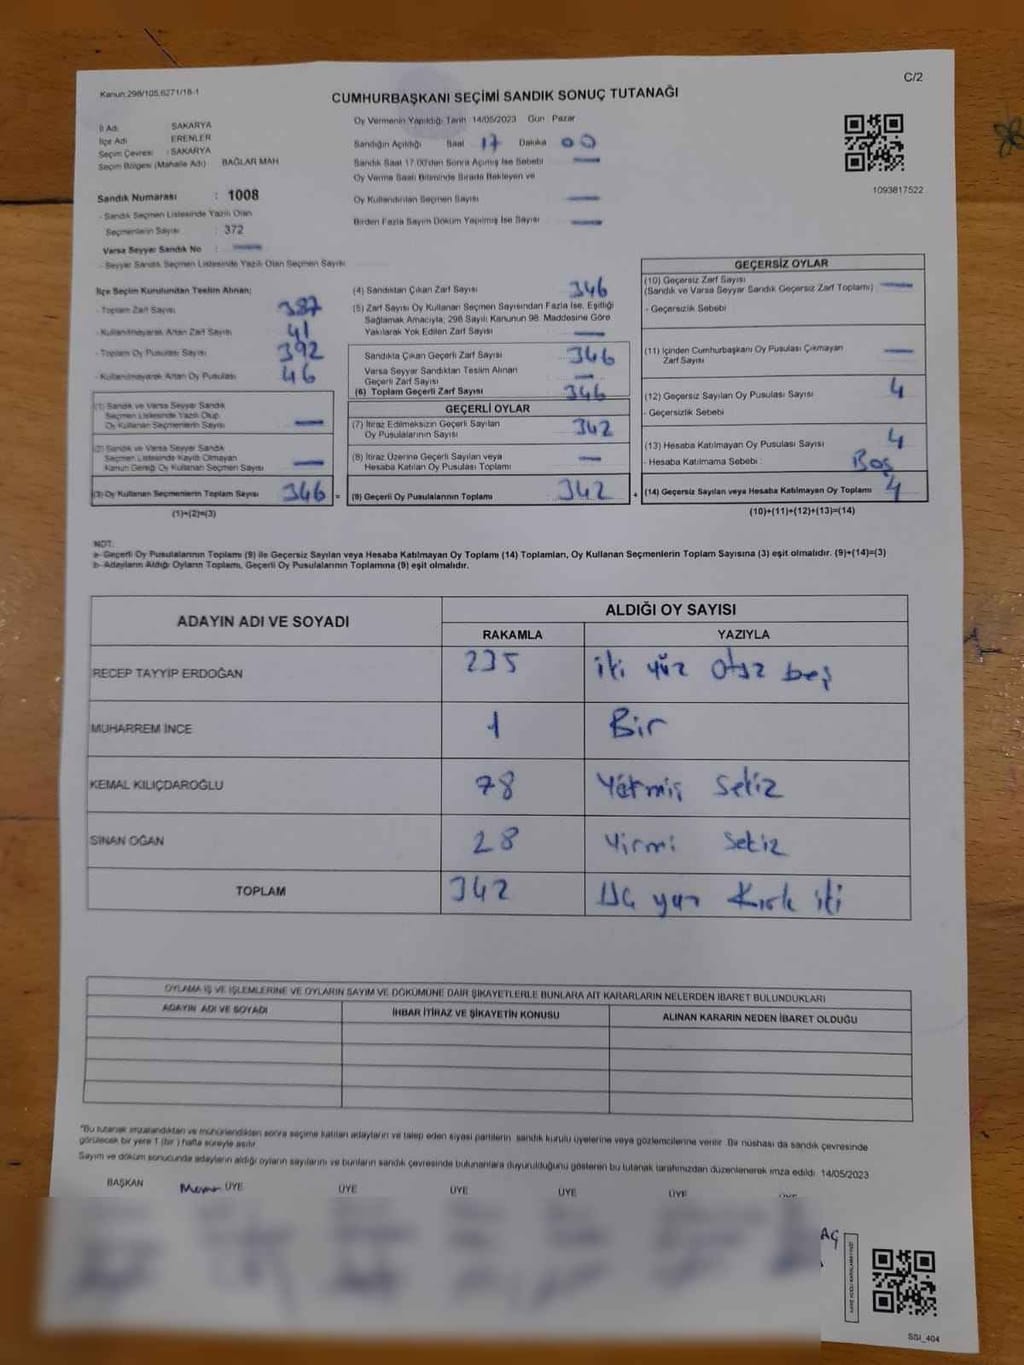 Kanun:298/105,6271/18-1
C/2
CUMHURBAŞKANI SEÇİMİ SANDIK SONUÇ TUTANAĞI
İl Adı : SAKARYA
İlçe Adı : ERENLER
Seçim Çevresi : SAKARYA
Seçim Bölgesi (Mahalle Adı) : BAĞLAR MAH
Sandık Numarası : 1008
- Sandık Seçmen Listesinde Yazılı Olan
Seçmenlerin Sayısı : 372
Varsa Seyyar Sandık No : —
- Seyyar Sandık Seçmen Listesinde Yazılı Olan Seçmen Sayısı:
Oy Vermenin Yapıldığı Tarih 14/05/2023 Gün Pazar
Sandığın Açıldığı Saat 17 Dakika 00
Sandık Saat 17.00'den Sonra Açılmış İse Sebebi —
Oy Verme Saati Bitiminde Sırada Bekleyen ve
Oy Kullandırılan Seçmen Sayısı —
Birden Fazla Sayım Döküm Yapılmış İse Sayısı —
1093817522
İlçe Seçim Kurulundan Teslim Alınan;
- Toplam Zarf Sayısı 387
- Kullanılmayarak Artan Zarf Sayısı 41
- Toplam Oy Pusulası Sayısı 392
- Kullanılmayarak Artan Oy Pusulası 46
(1) Sandık ve Varsa Seyyar Sandık
Seçmen Listesinde Yazılı Olup,
Oy Kullanan Seçmenlerin Sayısı —
(2) Sandık ve Varsa Seyyar Sandık
Seçmen Listesinde Kayıtlı Olmayan
Kanun Gereği Oy Kullanan Seçmen Sayısı —
(3) Oy Kullanan Seçmenlerin Toplam Sayısı 346 =
(1)+(2)=(3)
(4) Sandıktan Çıkan Zarf Sayısı 346
(5) Zarf Sayısı Oy Kullanan Seçmen Sayısından Fazla İse, Eşitliği
Sağlamak Amacıyla; 298 Sayılı Kanunun 98. Maddesine Göre
Yakılarak Yok Edilen Zarf Sayısı —
Sandıkta Çıkan Geçerli Zarf Sayısı 346
Varsa Seyyar Sandıktan Teslim Alınan
Geçerli Zarf Sayısı —
(6) Toplam Geçerli Zarf Sayısı 346
GEÇERLİ OYLAR
(7) İtiraz Edilmeksizin Geçerli Sayılan
Oy Pusulalarının Sayısı 342
(8) İtiraz Üzerine Geçerli Sayılan veya
Hesaba Katılan Oy Pusulası Toplamı —
(9) Geçerli Oy Pusulalarının Toplamı 342 +
GEÇERSİZ OYLAR
(10) Geçersiz Zarf Sayısı
(Sandık ve Varsa Seyyar Sandık Geçersiz Zarf Toplamı) —
- Geçersizlik Sebebi
(11) İçinden Cumhurbaşkanı Oy Pusulası Çıkmayan
Zarf Sayısı —
(12) Geçersiz Sayılan Oy Pusulası Sayısı 4
- Geçersizlik Sebebi
(13) Hesaba Katılmayan Oy Pusulası Sayısı 4
- Hesaba Katılmama Sebebi : Boş
(14) Geçersiz Sayılan veya Hesaba Katılmayan Oy Toplamı 4
(10)+(11)+(12)+(13)=(14)
NOT:
a- Geçerli Oy Pusulalarının Toplamı (9) ile Geçersiz Sayılan veya Hesaba Katılmayan Oy Toplamı (14) Toplamları, Oy Kullanan Seçmenlerin Toplam Sayısına (3) eşit olmalıdır. (9)+(14)=(3)
b- Adayların Aldığı Oyların Toplamı, Geçerli Oy Pusulalarının Toplamına (9) eşit olmalıdır.
ADAYIN ADI VE SOYADI
ALDIĞI OY SAYISI
RAKAMLA YAZIYLA
RECEP TAYYİP ERDOĞAN 235 iki yüz otuz beş
MUHARREM İNCE 1 Bir
KEMAL KILIÇDAROĞLU 78 Yetmiş sekiz
SİNAN OĞAN 28 Yirmi sekiz
TOPLAM 342 Üç yüz Kırk iki
OYLAMA İŞ VE İŞLEMLERİNE VE OYLARIN SAYIM VE DÖKÜMÜNE DAİR ŞİKAYETLERLE BUNLARA AİT KARARLARIN NELERDEN İBARET BULUNDUKLARI
ADAYIN ADI VE SOYADI İHBAR İTİRAZ VE ŞİKAYETİN KONUSU ALINAN KARARIN NEDEN İBARET OLDUĞU
"Bu tutanak imzalandıktan ve mühürlendikten sonra seçime katılan adayların ve talep eden siyasi partilerin sandık kurulu üyelerine veya gözlemcilerine verilir. Bir nüshası da sandık çevresinde
görülecek bir yere 1 (bir ) hafta süreyle asılır.
Sayım ve döküm sonucunda adayların aldığı oyların sayılarını ve bunların sandık çevresinde bulunanlara duyurulduğunu gösteren bu tutanak tarafımızdan düzenlenerek imza edildi. 14/05/2023
BAŞKAN Memur ÜYE ÜYE ÜYE ÜYE ÜYE ÜYE
SSI_404